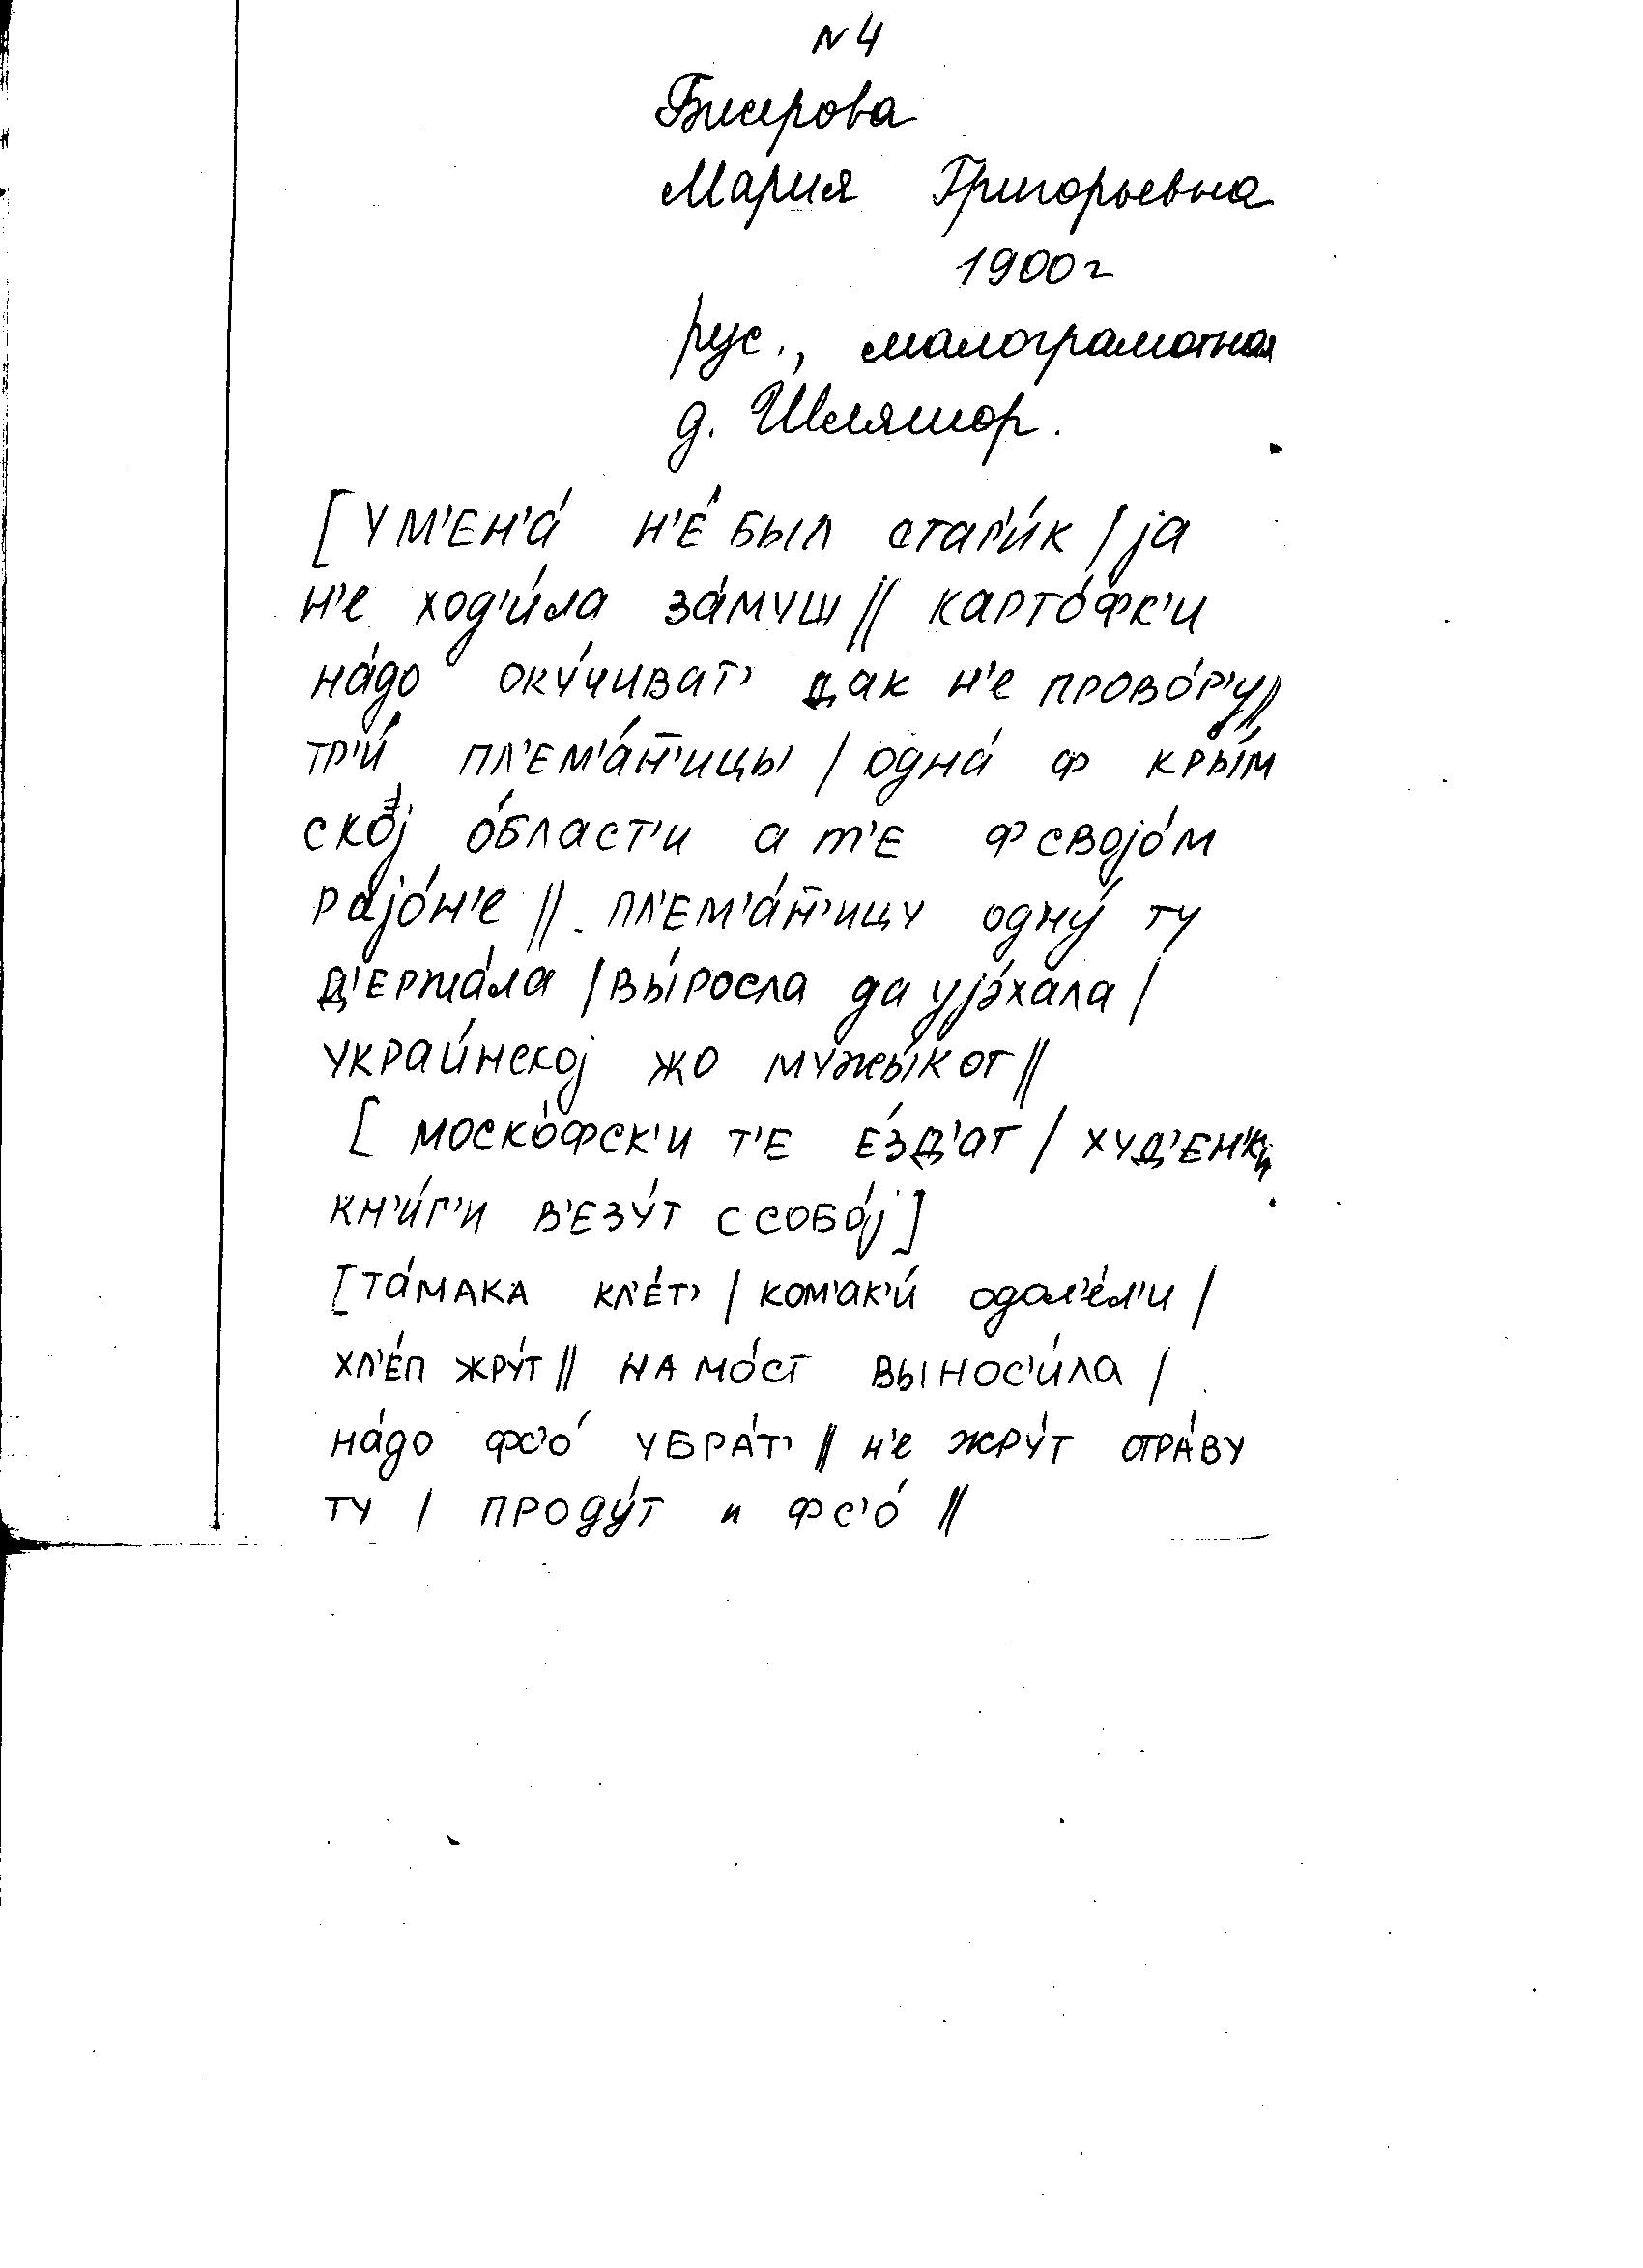 N 4
Бисерова
Мария Григорьевна
1900г
рус., малограмотная
д. Шляшор.
[ум'ен'а́ н'е́ был стар'и́к / jа
н'е ход'и́ла за́муш // карто́фк'и
на́до оку́чиват' дак н'е прово́р'у //
тр'и́ пл'ем'а́н̄'ицы / одна́ ф кры́м
ској о́бласт'и а т'е ф својо́м
рајо́н'е // пл'ем'а́н̄'ицу одну́ ту
д'ержа́ла / вы́росла да ујэ́хала /
украи́нској жо мужы́к от //
[ моско́фск'и т'е е́зд'ат / худ'ен'к'и
кн'и́г'и в'езу́т ссобо́ј]
[та́мака кл'е́т' / ком'ак'и́ одол'е́л'и /
хл'е́п жру́т // на мо́ст вынос'и́ла /
на́до фс'о́ убра́т' // н'е жру́т отра́ву
ту / проду́т и фс'о́ //